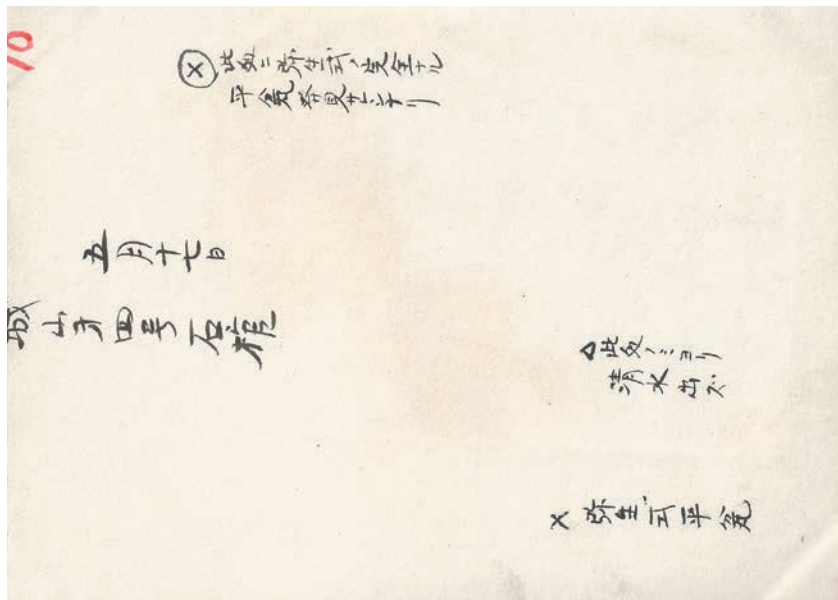 10
⊗此処ニ弥生式ノ完全ナル
平瓮発見
五月十七日
城山第四号石棺
△此処ノミヨリ
清水出ズ
×弥生式平瓮